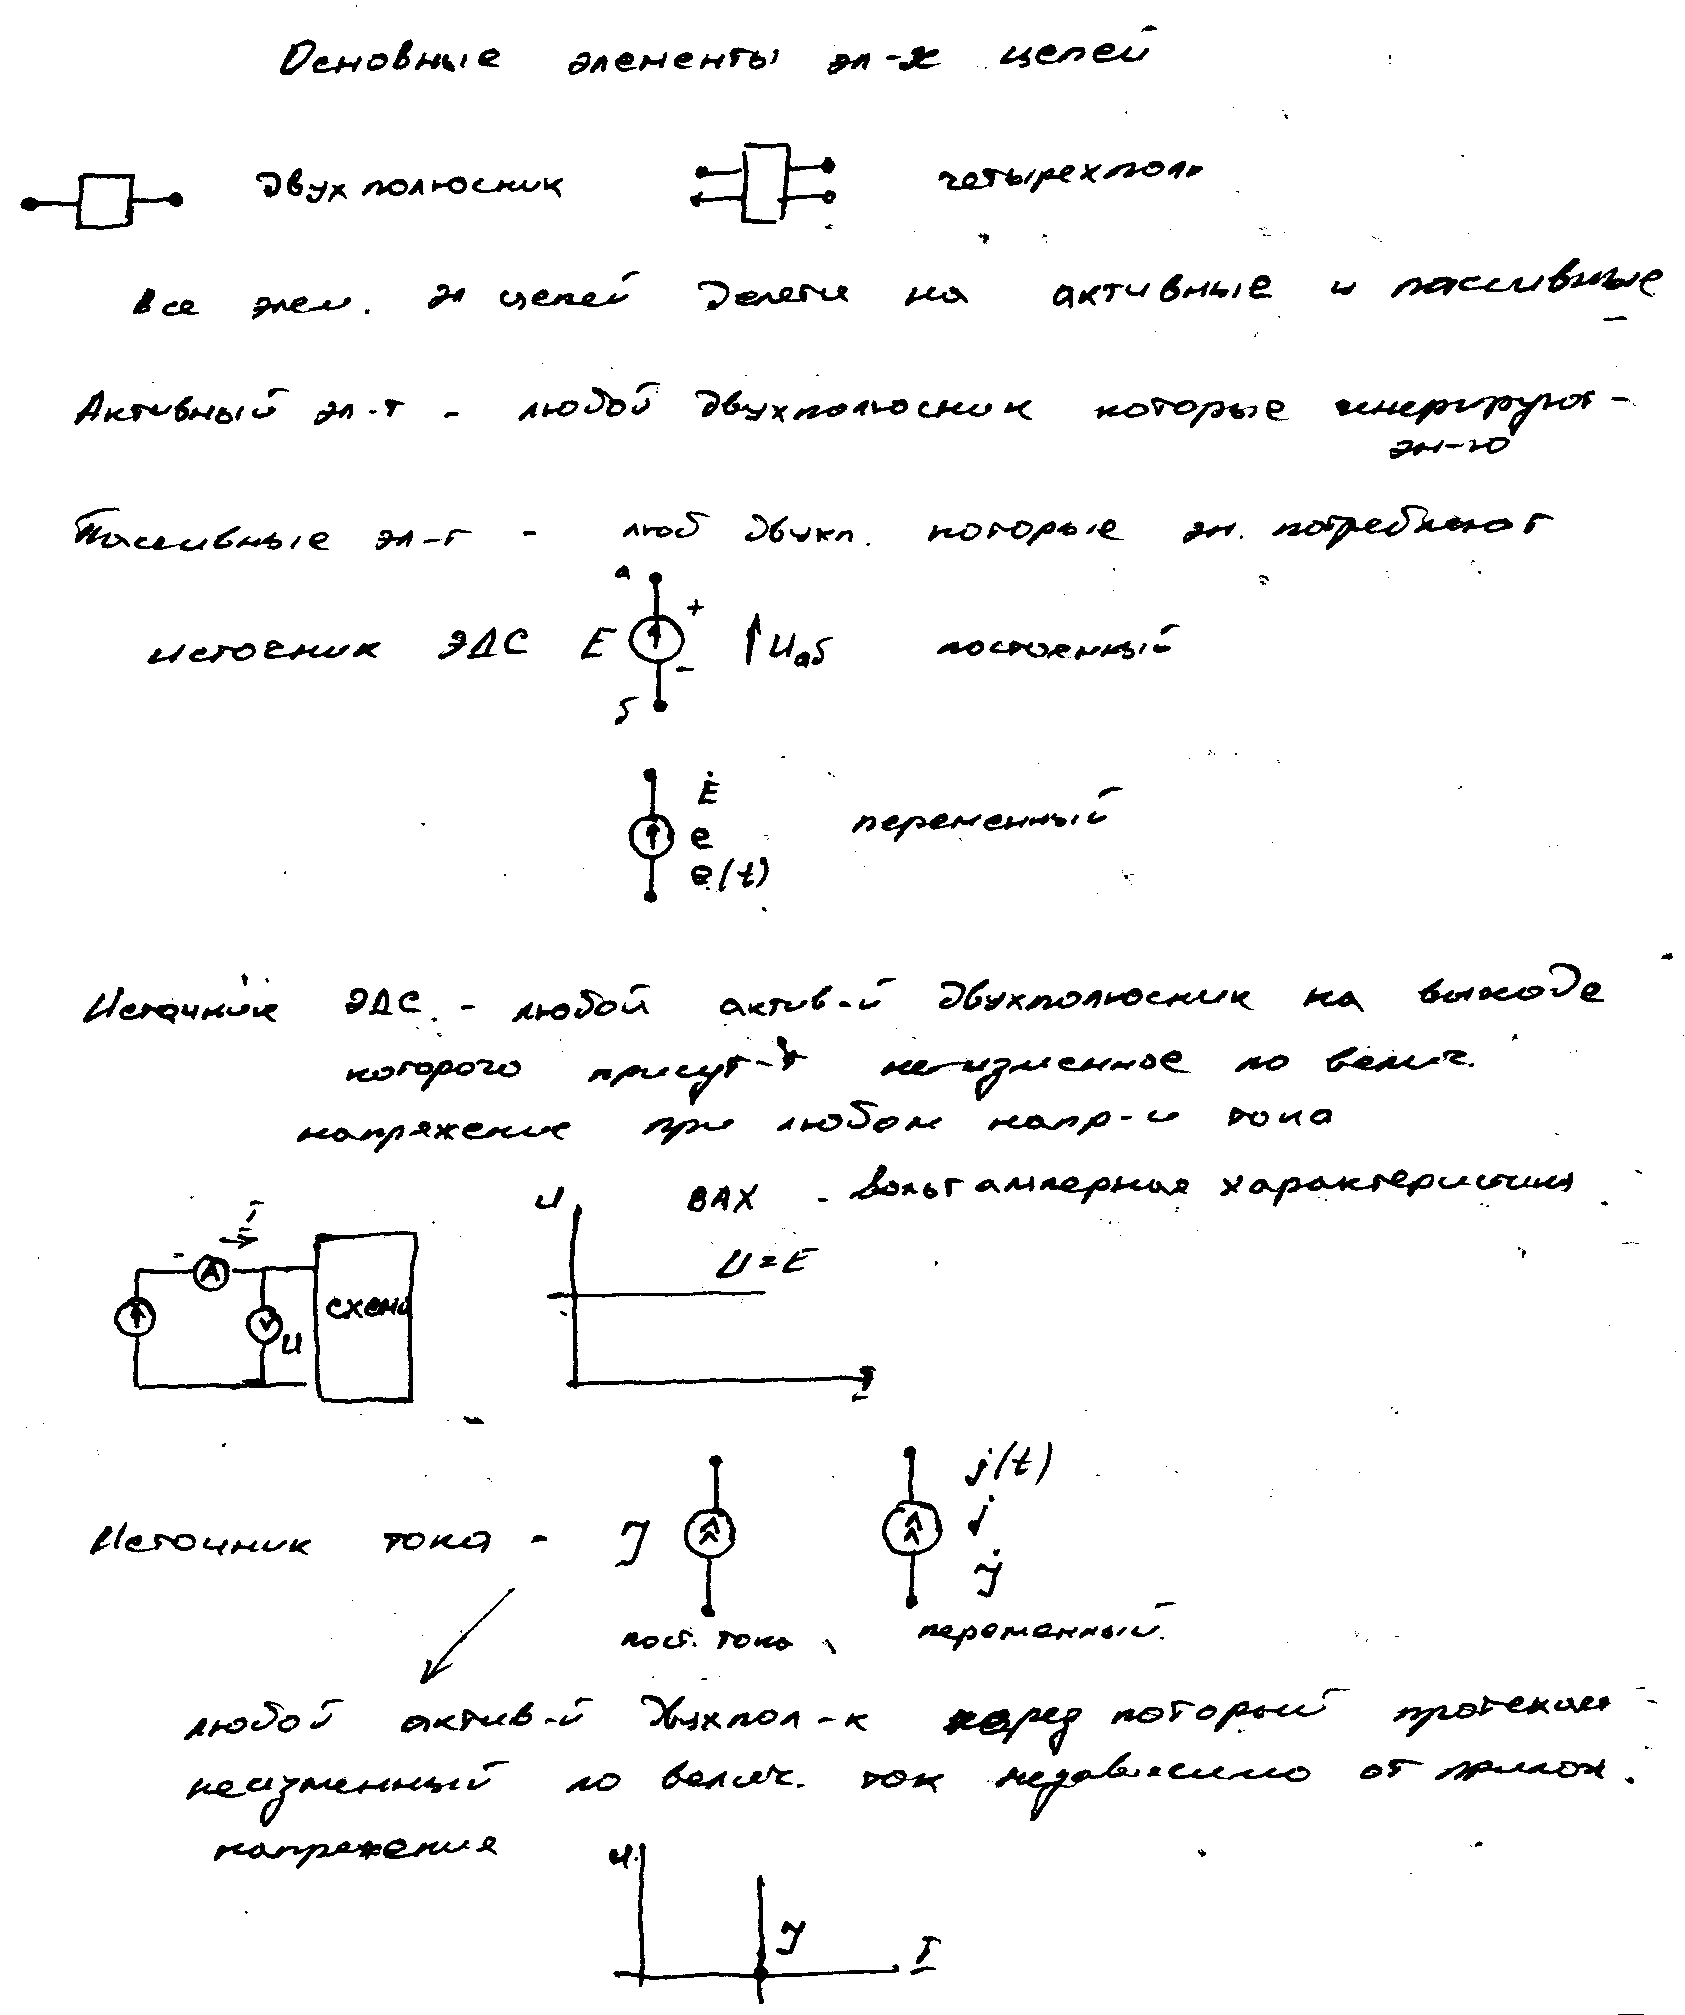 Основные элементы эл-х цепей
двухполюсник четырехполь
Все элем. эл цепей делятся на активные и пассивные
Активный эл-т - любой двухполюсник которые генерируют
эн-ю
Пассивные эл-т - люб двухп. которые эн. потребляют
а
источник ЭДС E + - ↑ Uаб постоенный
б
Ė
e переменный
e(t)
Источник ЭДС. - любой актив-й двухполюсник на выходе
которого присут-т неизменное по велич.
напряжение при любом напр-и тока
ВАХ - вольтамперная характеристика
I U U=E
A схема
V U
I
j(t)
j
Источник тока - J
J̇
пост. тока переменный.
любой актив-й двухпол-к через который протекает
неизменный по велич. ток независимо от прилож.
напряжения
U
J I